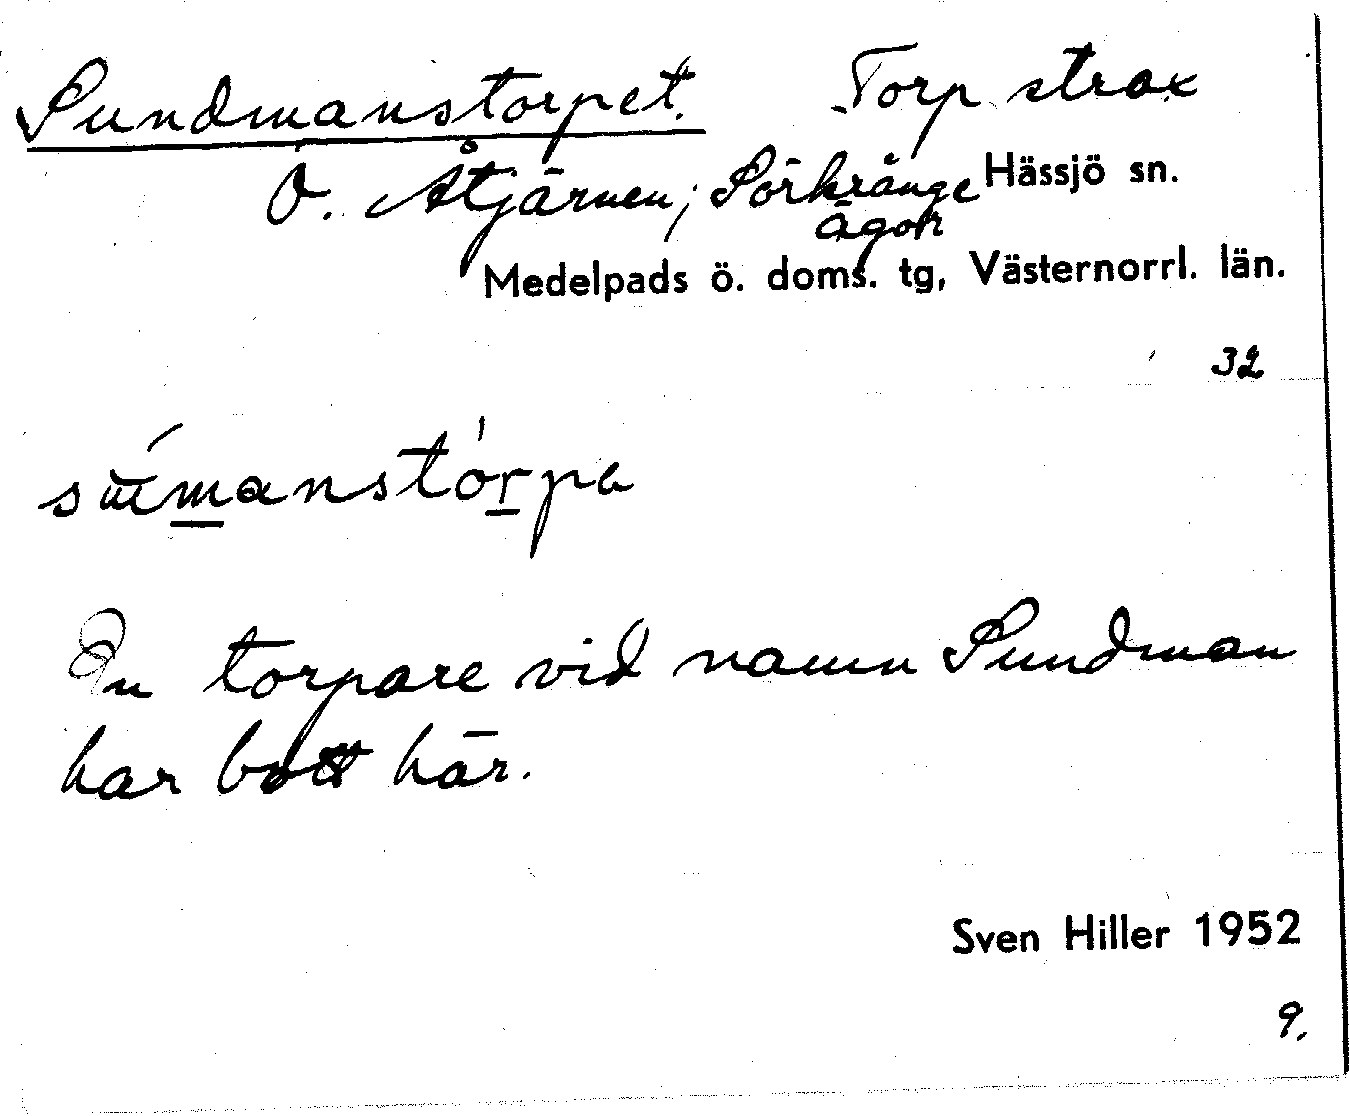 Sundmanstorpet. Torp strax
Ö. Åtjärnen; Sörkrånge Hässjö sn.
ägor
Medelpads ö. doms. tg, Västernorrl. län.
32
En torpare vid namn Sundman
har bott här.
Sven Hiller 1952
9.